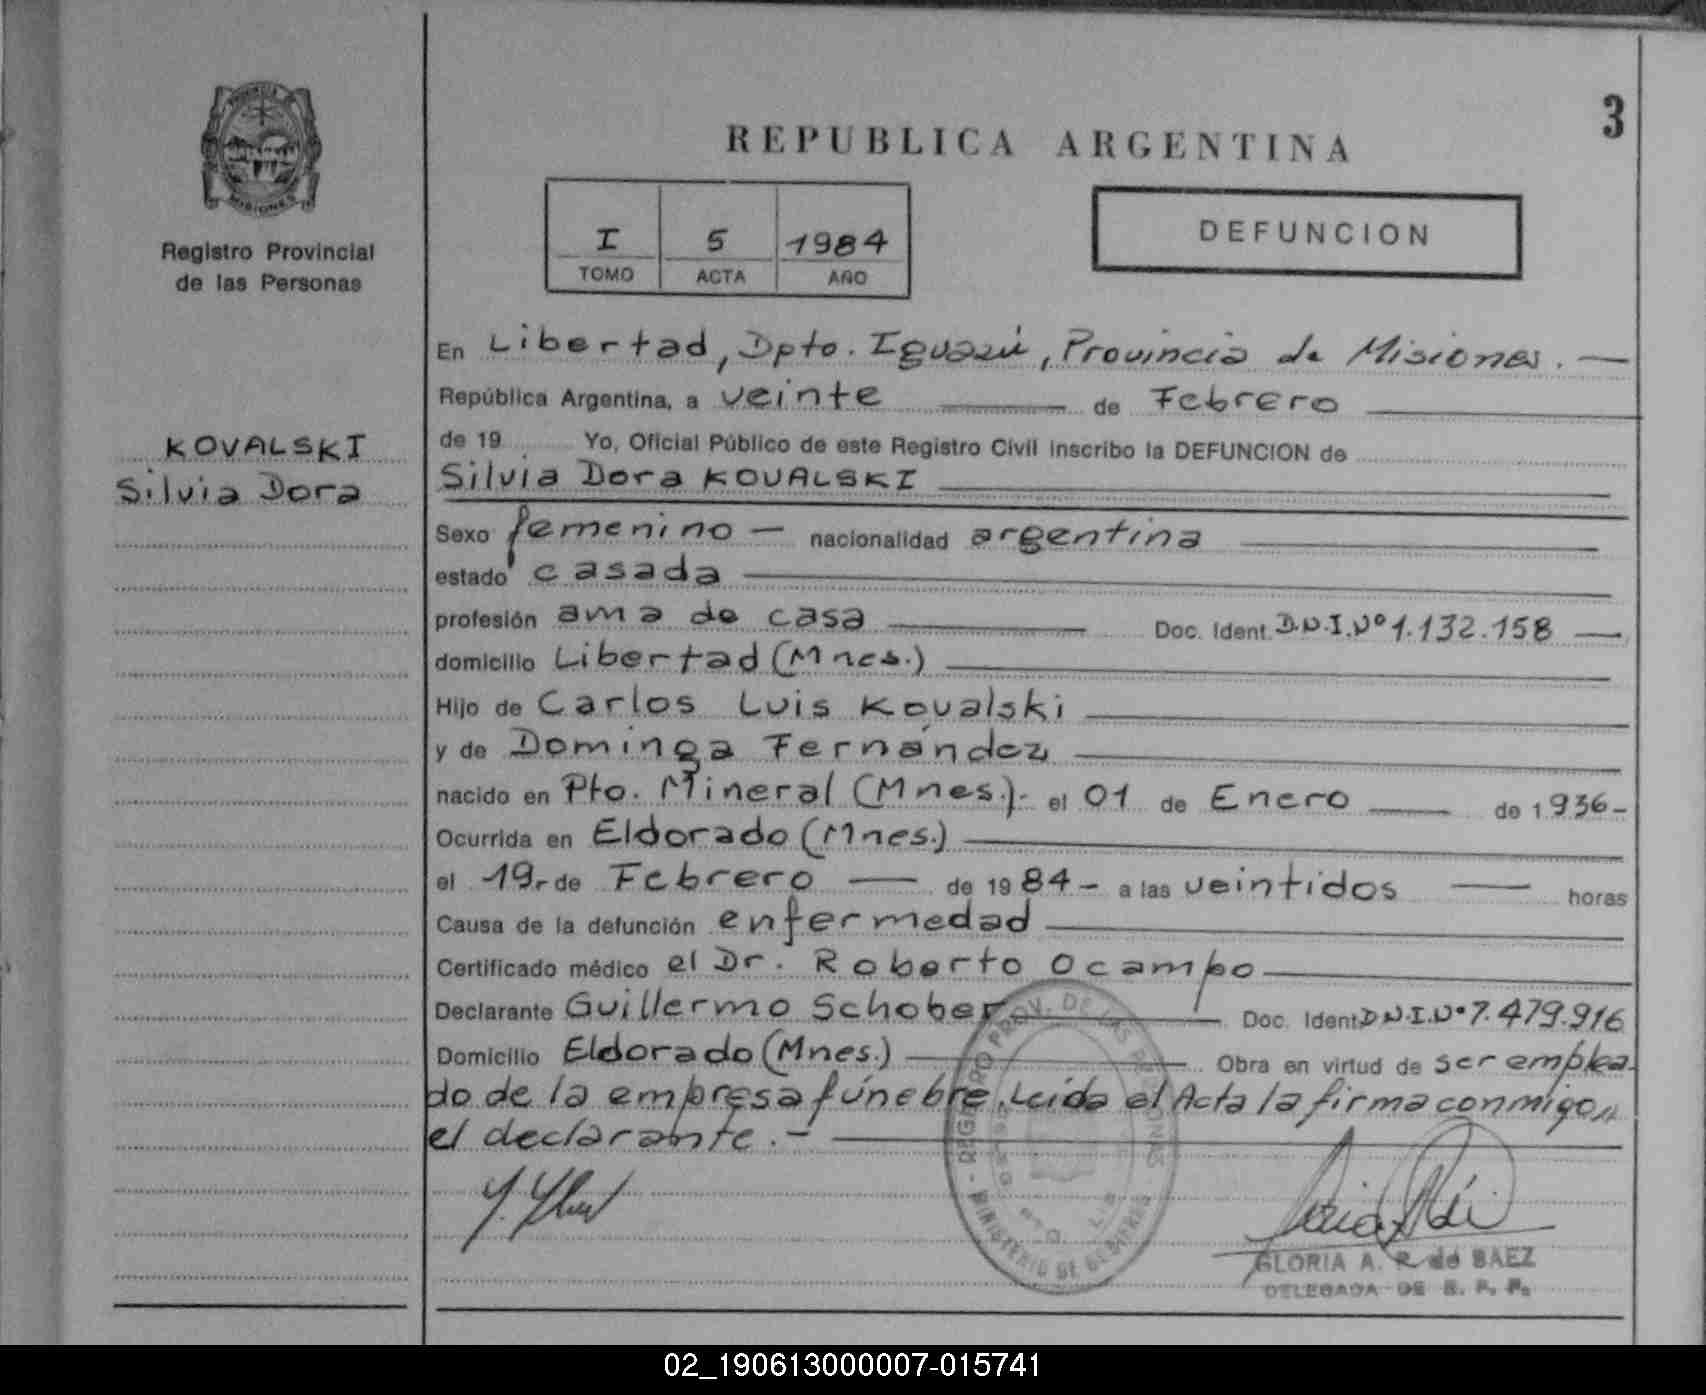 3
REPUBLICA ARGENTINA
PROVINCIA DE
MISIONES
Registro Provincial
de las Personas
I 5 1984
TOMO ACTA AÑO
DEFUNCION
KOVALSKI
Silvia Dora
En Libertad, Dpto. Iguazú, Provincia de Misiones. —
República Argentina, a veinte de Febrero
de 19 Yo, Oficial Público de este Registro Civil inscribo la DEFUNCION de
Silvia Dora KOVALSKI
Sexo femenino — nacionalidad argentina
estado casada
profesión ama de casa Doc. Ident. D.N.I.Nº 1.132.158 —
domicilio Libertad (Mnes.)
Hijo de Carlos Luis Kovalski
y de Dominga Fernández
nacido en Pto. Mineral (Mnes.).- el 01 de Enero de 1936-
Ocurrida en Eldorado (Mnes.)
el 19.- de Febrero — de 1984- a las veintidos — horas
Causa de la defunción enfermedad
Certificado médico el Dr. Roberto Ocampo
Declarante Guillermo Schober Doc. Ident. D.N.I.Nº 7.479.916
Domicilio Eldorado (Mnes.) Obra en virtud de ser emplea-
do de la empresa fúnebre. Leída el Acta la firma conmigo,,
el declarante.-
REGISTRO PROV. DE LAS PERSONAS
MINISTERIO DE GOBIERNO
GLORIA A. R. de BAEZ
DELEGADA DE R. P. P.
02_190613000007-015741